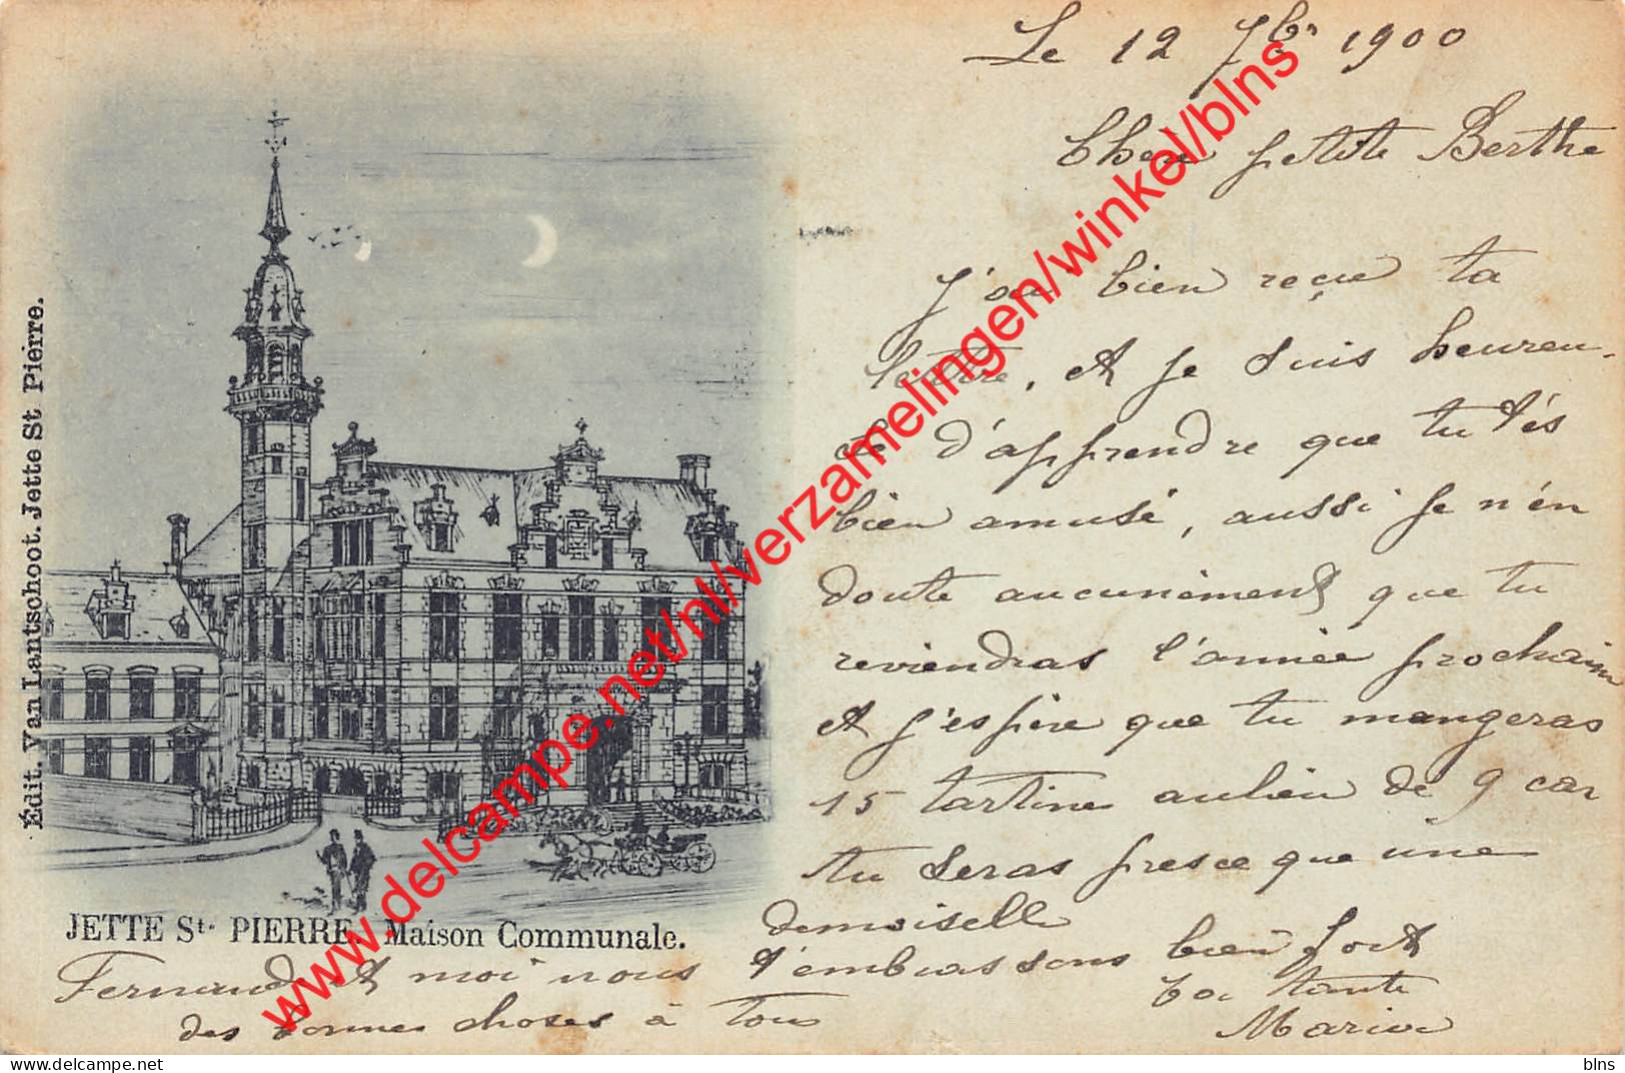 Le 12 7bre 1900
Chère petite Berthe
J'ai bien reçue ta
lettre, et je suis heureu-
se d'apprendre que tu t'és
bien amusé, aussi je n'en
doute aucunement que tu
reviendras l'année prochain
et j'espère que tu mangeras
15 tartine aulieu de 9 car
tu seras presce que une
demoiselle
Fernand et moi nous t'embrassons bien fort
des bonnes choses à tous
ta tante
Maria
Édit. Van Lantschoot. Jette St Pierre.
JETTE St. PIERRE. Maison Communale.
www.delcampe.net/nl/verzamelingen/winkel/blns
blns